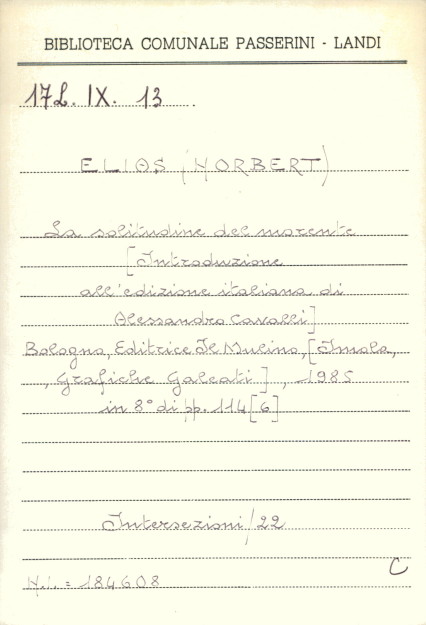 BIBLIOTECA COMUNALE PASSERINI - LANDI
17L. IX. 13
ELIAS (NORBERT)
La solitudine del morente
[Introduzione
all'edizione italiana di
Alessandro Cavalli]
Bologna, Editrice Il Mulino, [Imola,
, Grafiche Galeati ] , 1985
in 8° di pp. 114 [6]
Intersezioni / 22
C
N.i. = 184608